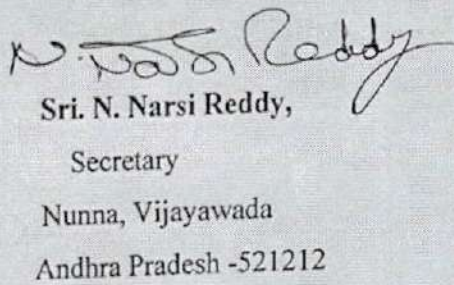 N. Narsi Reddy
Sri. N. Narsi Reddy,
Secretary
Nunna, Vijayawada
Andhra Pradesh -521212